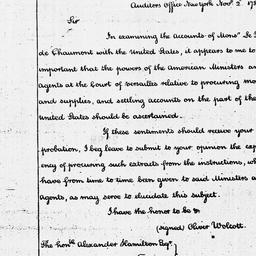 Auditors Office New York Nov. 2. 178
Sir
In examining the Accounts of Monsr. Le
de Chaumont with the United States, it appears to me to
important that the powers of the American Ministers a
Agents at the Court of Versailes relative to procuring mo
and supplies, and settling accounts on the part of the
United States should be ascertained.
If these sentiments should receive your
probation, I beg leave to submit to your opinion the exp
ency of procuring such extracts from the instructions, wh
have from time to time been given to said Ministers a
Agents, as may serve to elucidate this subject.
I have the honor to be &
(signed) Oliver Wolcott.
The honble Alexander Hamilton Esqr.